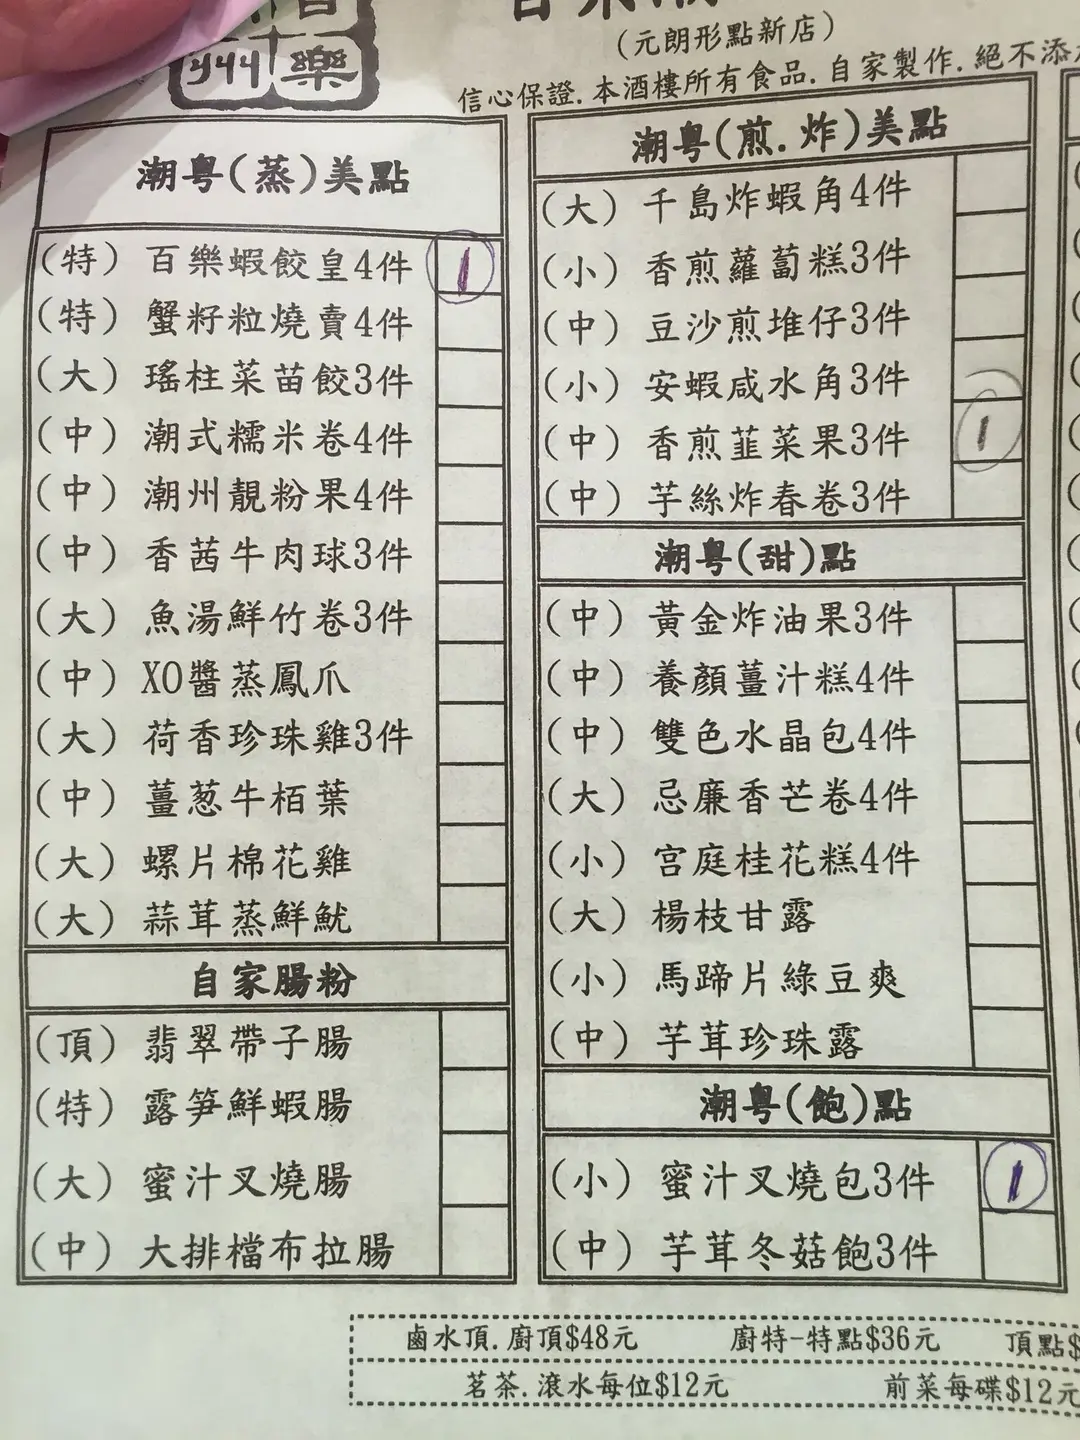 州樂
(元朗形點新店)
信心保證.本酒樓所有食品.自家製作.絕不添
潮粵(蒸)美點
(特) 百樂蝦餃皇4件 1
(特) 蟹籽粒燒賣4件
(大) 瑤柱菜苗餃3件
(中) 潮式糯米卷4件
(中) 潮州靚粉果4件
(中) 香茜牛肉球3件
(大) 魚湯鮮竹卷3件
(中) XO醬蒸鳳爪
(大) 荷香珍珠雞3件
(中) 薑葱牛栢葉
(大) 螺片棉花雞
(大) 蒜茸蒸鮮魷
自家腸粉
(頂) 翡翠帶子腸
(特) 露笋鮮蝦腸
(大) 蜜汁叉燒腸
(中) 大排檔布拉腸
潮粵(煎.炸)美點
(大) 千島炸蝦角4件
(小) 香煎蘿蔔糕3件
(中) 豆沙煎堆仔3件
(小) 安蝦咸水角3件
(中) 香煎韮菜果3件 1
(中) 芋絲炸春卷3件
潮粵(甜)點
(中) 黃金炸油果3件
(中) 養顏薑汁糕4件
(中) 雙色水晶包4件
(大) 忌廉香芒卷4件
(小) 宮庭桂花糕4件
(大) 楊枝甘露
(小) 馬蹄片綠豆爽
(中) 芋茸珍珠露
潮粵(飽)點
(小) 蜜汁叉燒包3件 1
(中) 芋茸冬菇飽3件
鹵水頂.廚頂$48元 廚特-特點$36元 頂點$
茗茶.滾水每位$12元 前菜每碟$12元